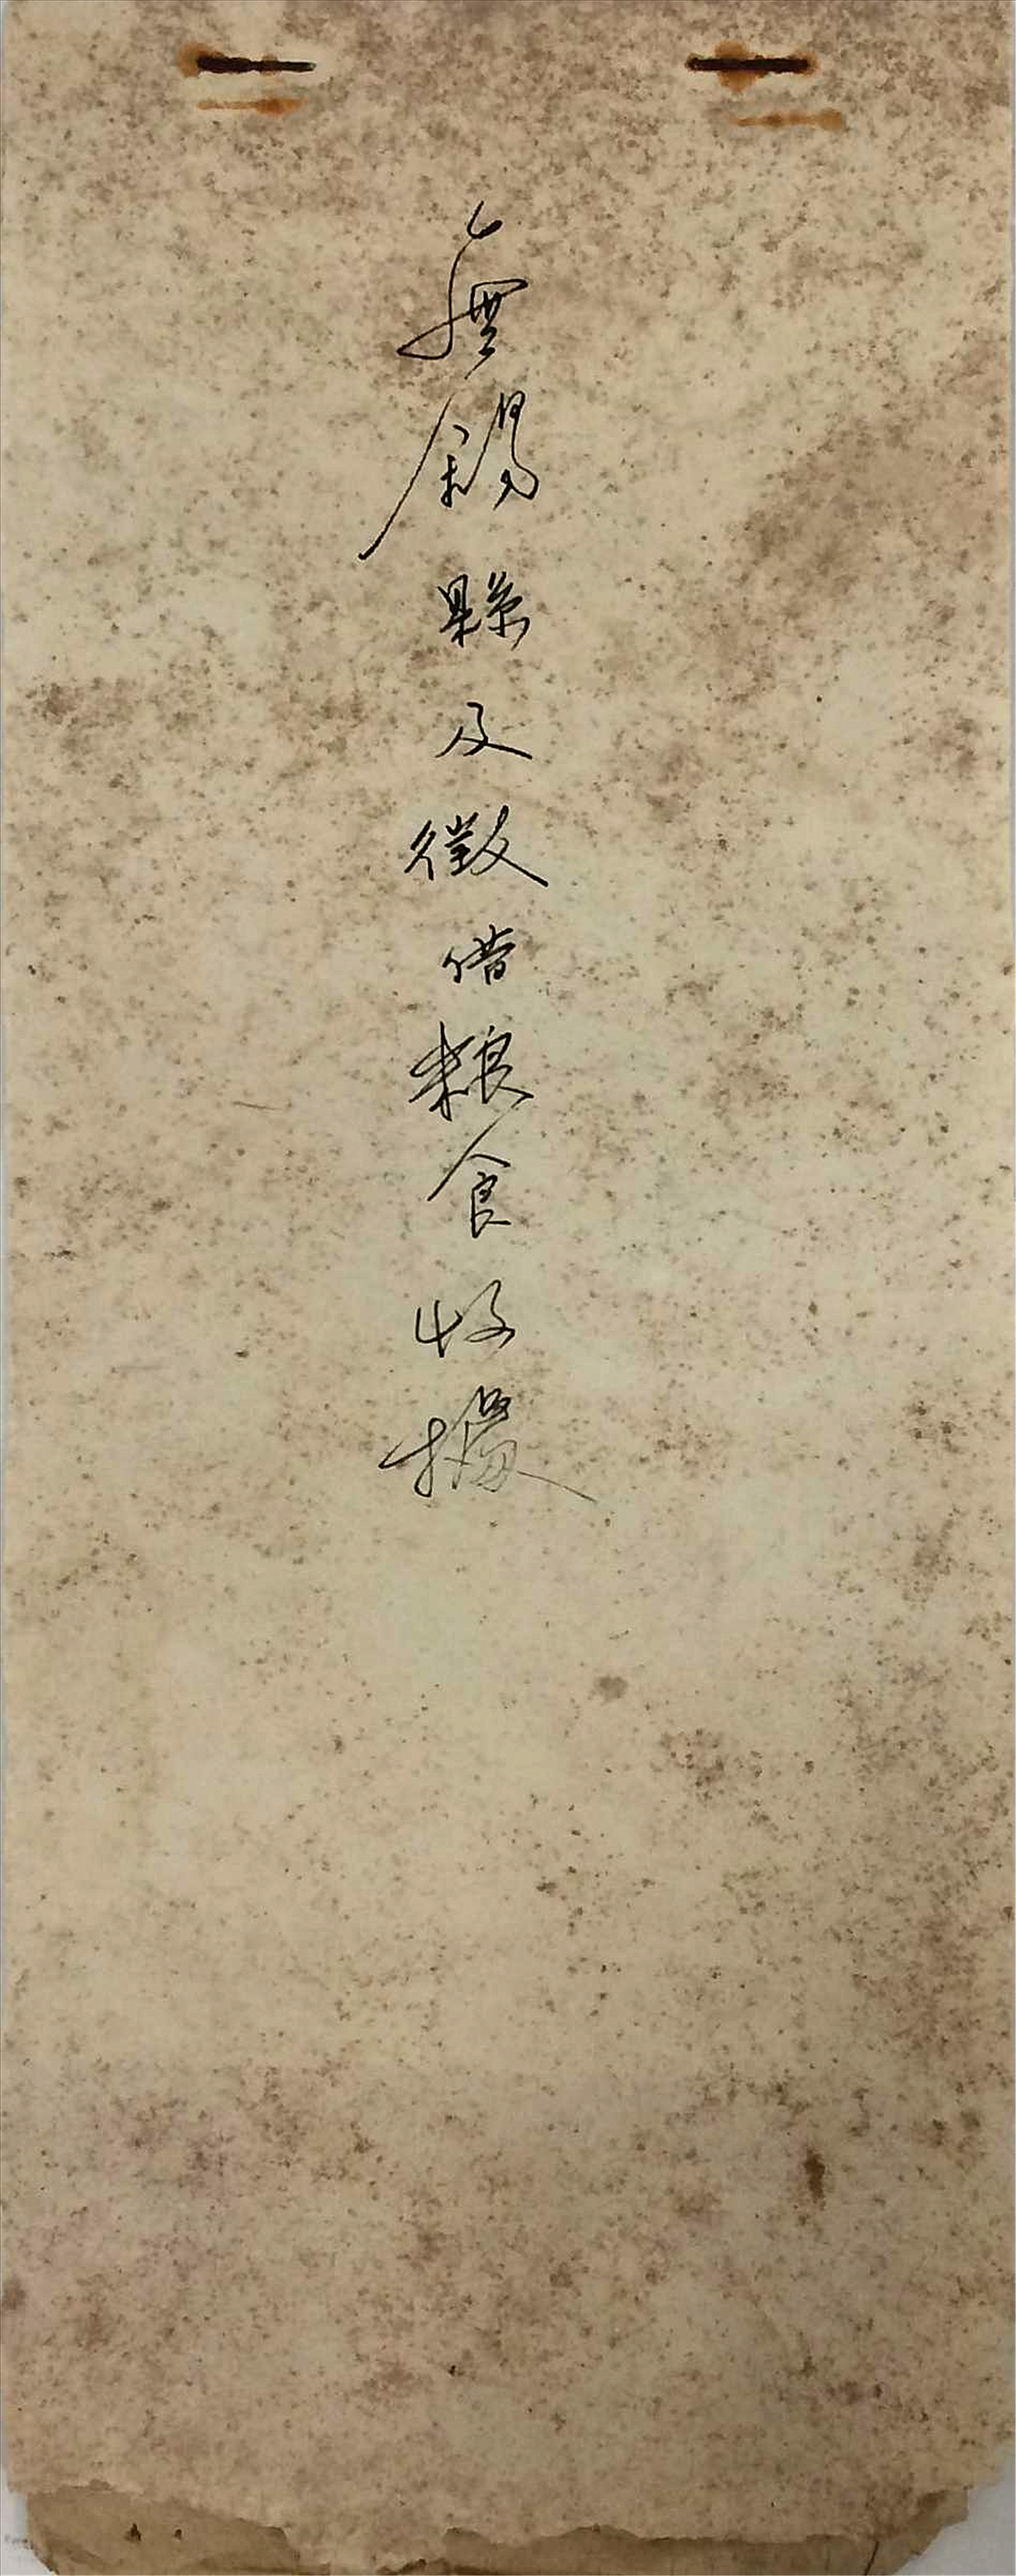 無錫縣及徵借粮食收據